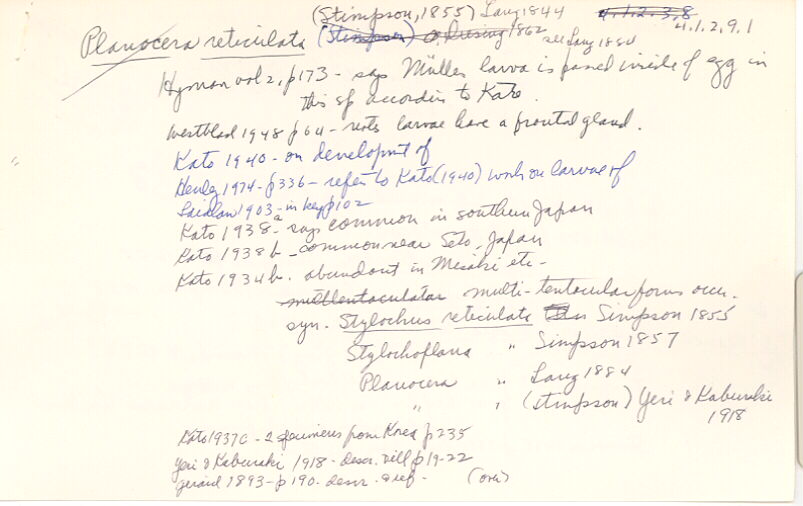 (Stimpson, 1855) Lang 1844 4.1.2.3.8
Planocera reticulata (Stimpson) 1862 see Lang 1884 4.1.2.9.1
Hyman vol 2, p173 - says Müller larva is passed inside of egg in
this sp according to Kato.
Westblad 1948 p64 - notes larvae have a frontal gland.
Kato 1940 - on developmt of
Henley 1974 - p336 - refer to Kato (1940) work on larvae of
Laidlaw 1903 - in key p102
Kato 1938a - says common in southern Japan
Kato 1938b - common near Seto, Japan
Kato 1934b. abundant in Misaki etc -
multitentacular multi-tentacular forms occur.
syn. Stylochus reticulata Simpson 1855
Stylochoplana " Simpson 1857
Planocera " Lang 1884
" , (Stimpson) Yeri & Kaburaki
1918
Kato 1937c - 2 specimens from Korea p235
Yeri & Kaburaki 1918 - descr. + ill p19-22
Gerard 1893 - p190. descr. & ref - (over)